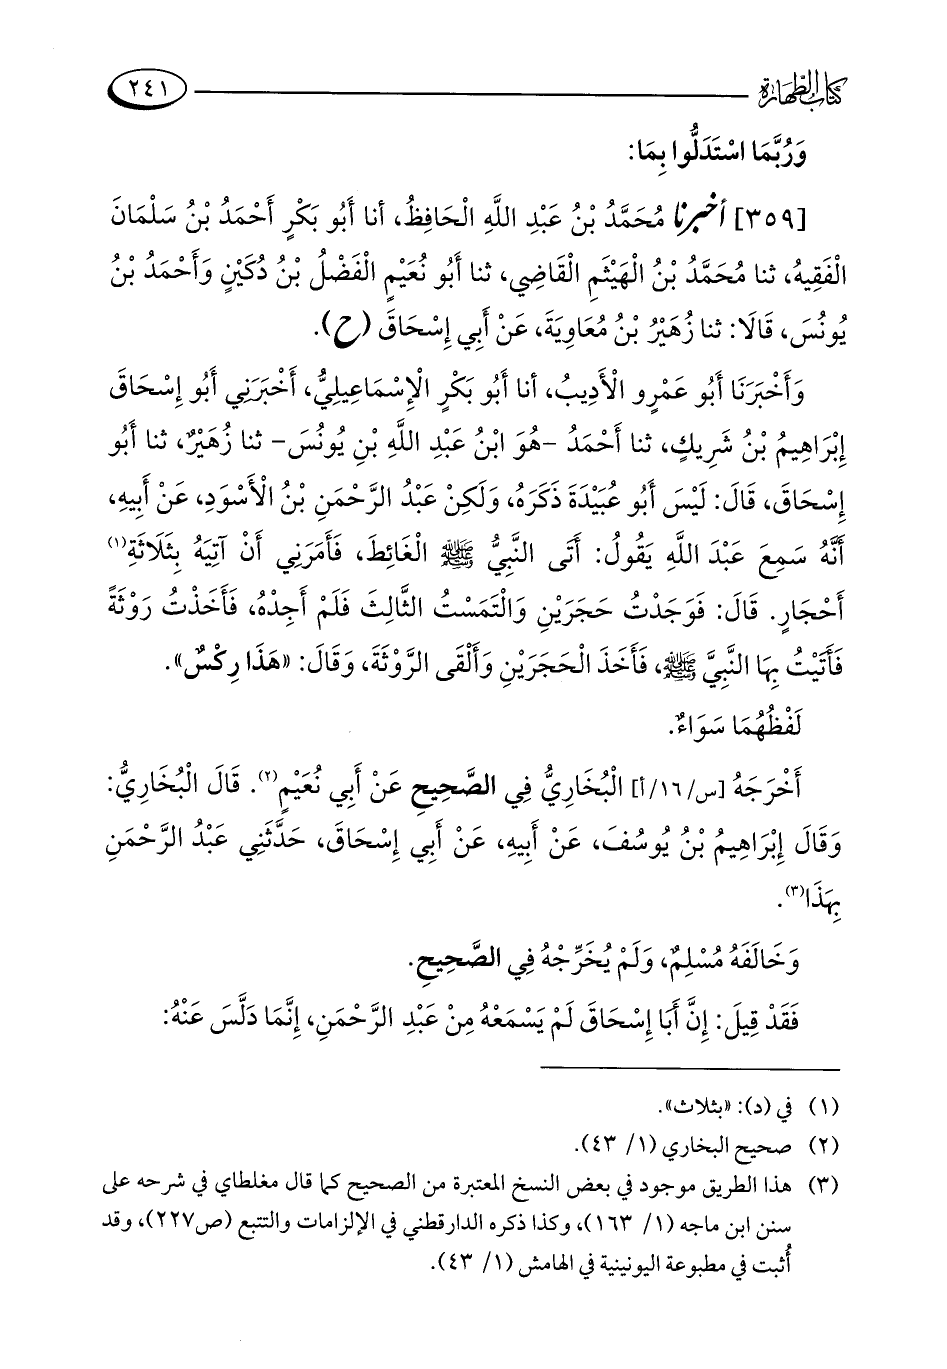 كتاب الطهارة ٢٤١
وَرُبَّمَا اسْتَدَلُّوا بِمَا:
[٣٥٩] أخبرنا مُحَمَّدُ بْنُ عَبْدِ اللَّهِ الْحَافِظُ، أنا أَبُو بَكْرٍ أَحْمَدُ بْنُ سَلْمَانَ
الْفَقِيهُ، ثنا مُحَمَّدُ بْنُ الْهَيْثَمِ الْقَاضِي، ثنا أَبُو نُعَيْمٍ الْفَضْلُ بْنُ دُكَيْنٍ وَأَحْمَدُ بْنُ
يُونُسَ، قَالَا: ثنا زُهَيْرُ بْنُ مُعَاوِيَةَ، عَنْ أَبِي إِسْحَاقَ (ح).
وَأَخْبَرَنَا أَبُو عَمْرٍو الْأَدِيبُ، أنا أَبُو بَكْرٍ الْإِسْمَاعِيلِيُّ، أَخْبَرَنِي أَبُو إِسْحَاقَ
إِبْرَاهِيمُ بْنُ شَرِيكٍ، ثنا أَحْمَدُ -هُوَ ابْنُ عَبْدِ اللَّهِ بْنِ يُونُسَ- ثنا زُهَيْرٌ، ثنا أَبُو
إِسْحَاقَ، قَالَ: لَيْسَ أَبُو عُبَيْدَةَ ذَكَرَهُ، وَلَكِنْ عَبْدُ الرَّحْمَنِ بْنُ الْأَسْوَدِ، عَنْ أَبِيهِ،
أَنَّهُ سَمِعَ عَبْدَ اللَّهِ يَقُولُ: أَتَى النَّبِيُّ ﷺ الْغَائِطَ، فَأَمَرَنِي أَنْ آتِيَهُ بِثَلَاثَةِ(١)
أَحْجَارٍ. قَالَ: فَوَجَدْتُ حَجَرَيْنِ وَالْتَمَسْتُ الثَّالِثَ فَلَمْ أَجِدْهُ، فَأَخَذْتُ رَوْثَةً
فَأَتَيْتُ بِهَا النَّبِيَّ ﷺ، فَأَخَذَ الْحَجَرَيْنِ وَأَلْقَى الرَّوْثَةَ، وَقَالَ: «هَذَا رِكْسٌ».
لَفْظُهُمَا سَوَاءٌ.
أَخْرَجَهُ [س/١٦/أ] الْبُخَارِيُّ فِي الصَّحِيحِ عَنْ أَبِي نُعَيْمٍ(٢). قَالَ الْبُخَارِيُّ:
وَقَالَ إِبْرَاهِيمُ بْنُ يُوسُفَ، عَنْ أَبِيهِ، عَنْ أَبِي إِسْحَاقَ، حَدَّثَنِي عَبْدُ الرَّحْمَنِ
بِهَذَا(٣).
وَخَالَفَهُ مُسْلِمٌ، وَلَمْ يُخَرِّجْهُ فِي الصَّحِيحِ.
فَقَدْ قِيلَ: إِنَّ أَبَا إِسْحَاقَ لَمْ يَسْمَعْهُ مِنْ عَبْدِ الرَّحْمَنِ، إِنَّمَا دَلَّسَ عَنْهُ:
(١) في (د): «بثلاث».
(٢) صحيح البخاري (١/ ٤٣).
(٣) هذا الطريق موجود في بعض النسخ المعتبرة من الصحيح كما قال مغلطاي في شرحه على
سنن ابن ماجه (١/ ١٦٣)، وكذا ذكره الدارقطني في الإلزامات والتتبع (ص٢٢٧)، وقد
أُثبت في مطبوعة اليونينية في الهامش (١/ ٤٣).